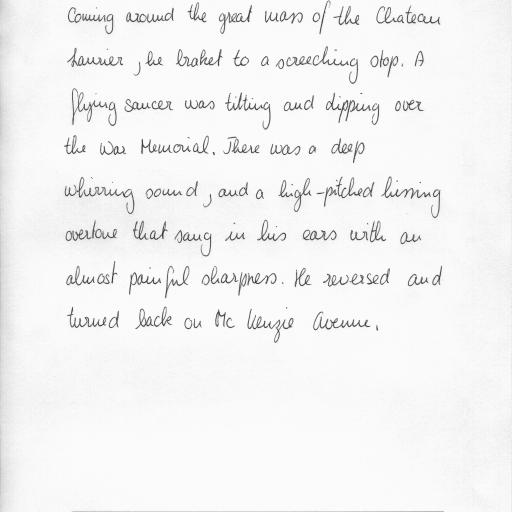 Coming around the great mass of the Chateau
Laurier, he braket to a screeching stop. A
flying saucer was tilting and dipping over
the War Memorial. There was a deep
whirring sound, and a high-pitched hissing
overtone that sang in his ears with an
almost painful sharpness. He reversed and
turned back on Mc Kenzie Avenue.